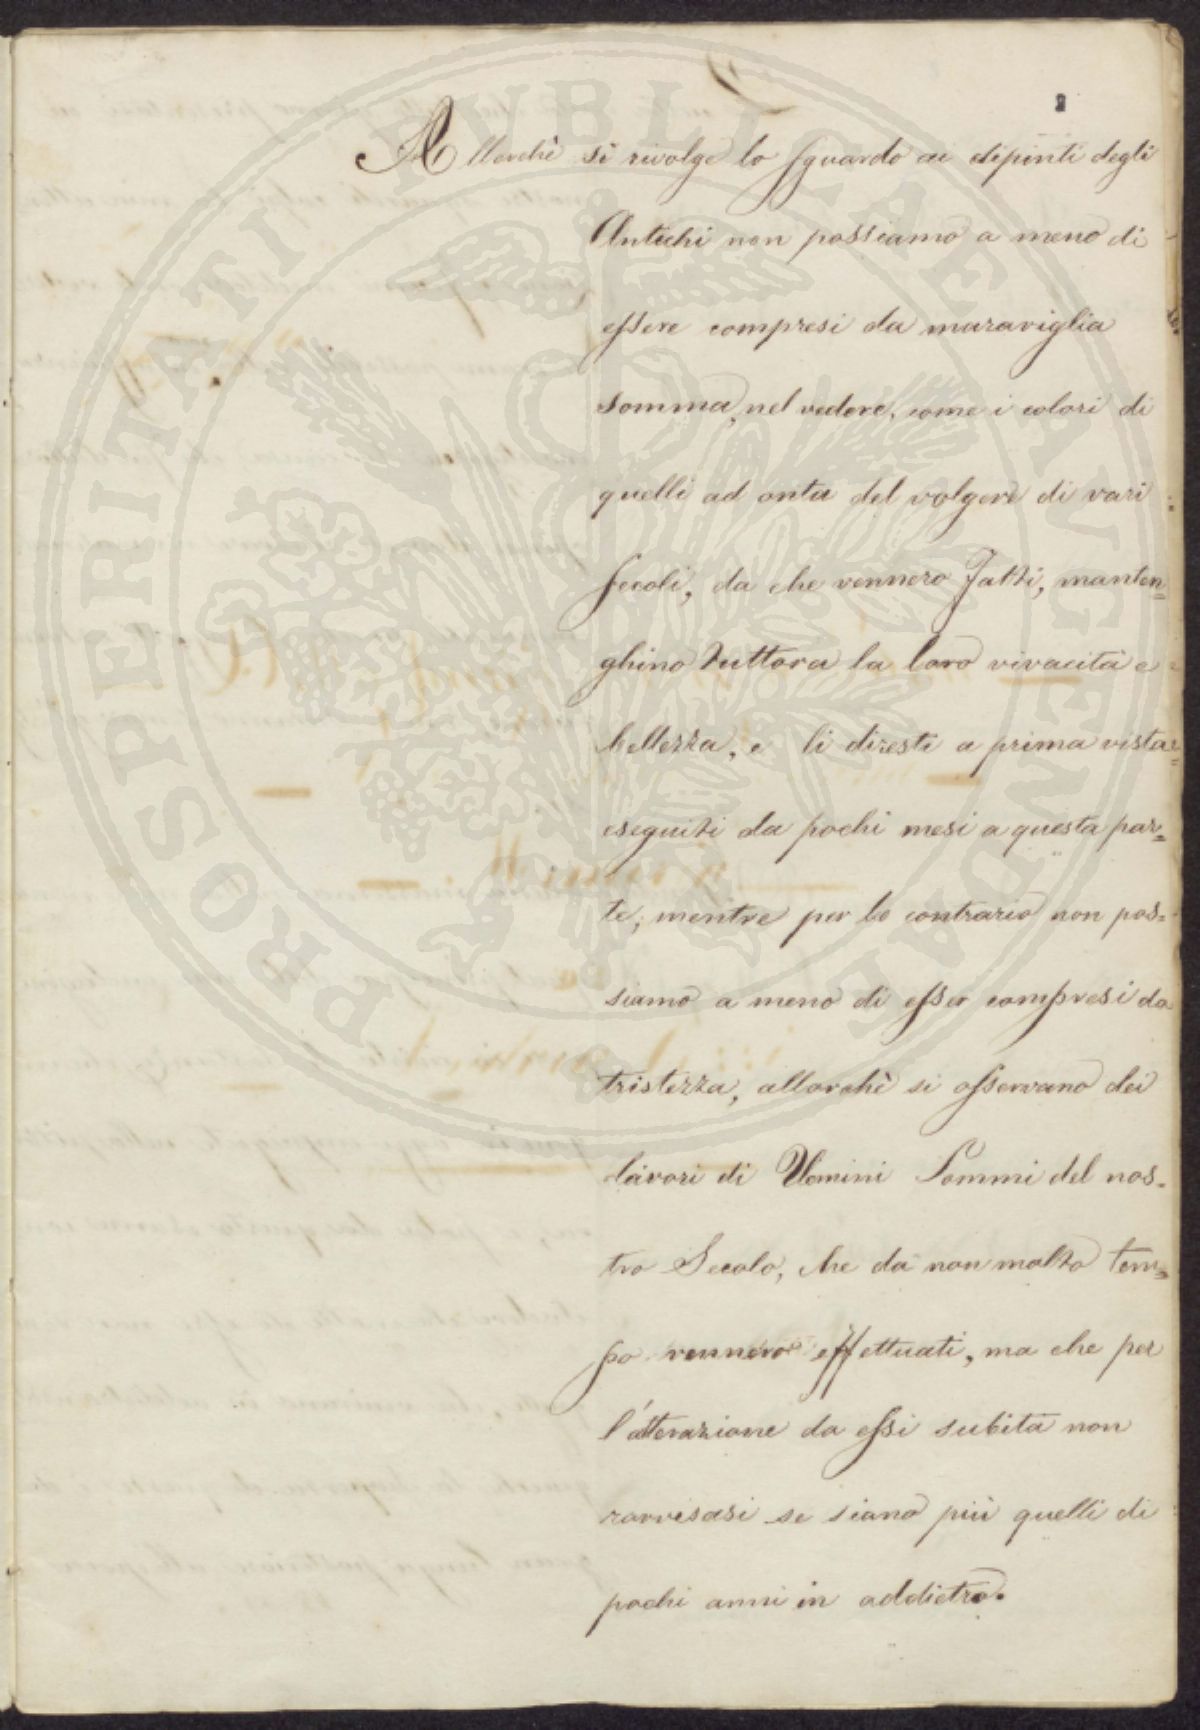 2
Allorchè si rivolge lo sguardo ai dipinti degli
Antichi non possiamo a meno di
essere compresi da maraviglia
somma, nel vedere, come i colori di
quelli ad onta del volgere di vari
secoli, da che vennero fatti, manten=
ghino tuttora la loro vivacità e
bellezza, e li diresti a prima vista
eseguiti da pochi mesi a questa par=
te, mentre per lo contrario non pos=
siamo a meno di esser compresi da
tristezza, allorchè si osservano dei
lavori di Uomini Sommi del nos=
tro Secolo, che da non molto tem=
po vennero effettuati, ma che per
l'alterazione da essi subita non
ravvisasi se siano più quelli di
pochi anni in addietro.
PROSPERITATI PUBLICAE AUGENDAE